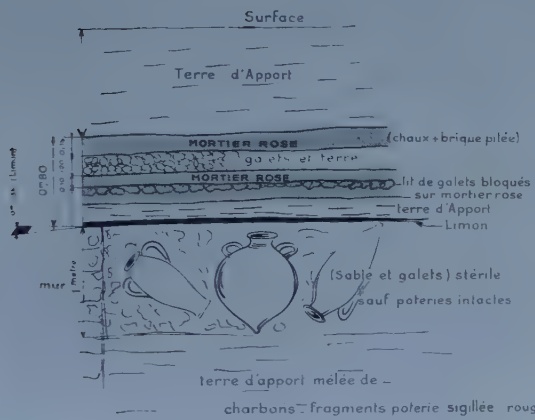 Surface
Terre d'Apport
MORTIER ROSE
(chaux + brique pilée)
galets et terre
MORTIER ROSE
lit de galets bloqués
sur mortier rose
terre d'Apport
Limon
0m80
mur
1 mètre
(Sable et galets) stérile
sauf poteries intactes
terre d'apport mêlée de -
charbons - fragments poterie sigillée roug